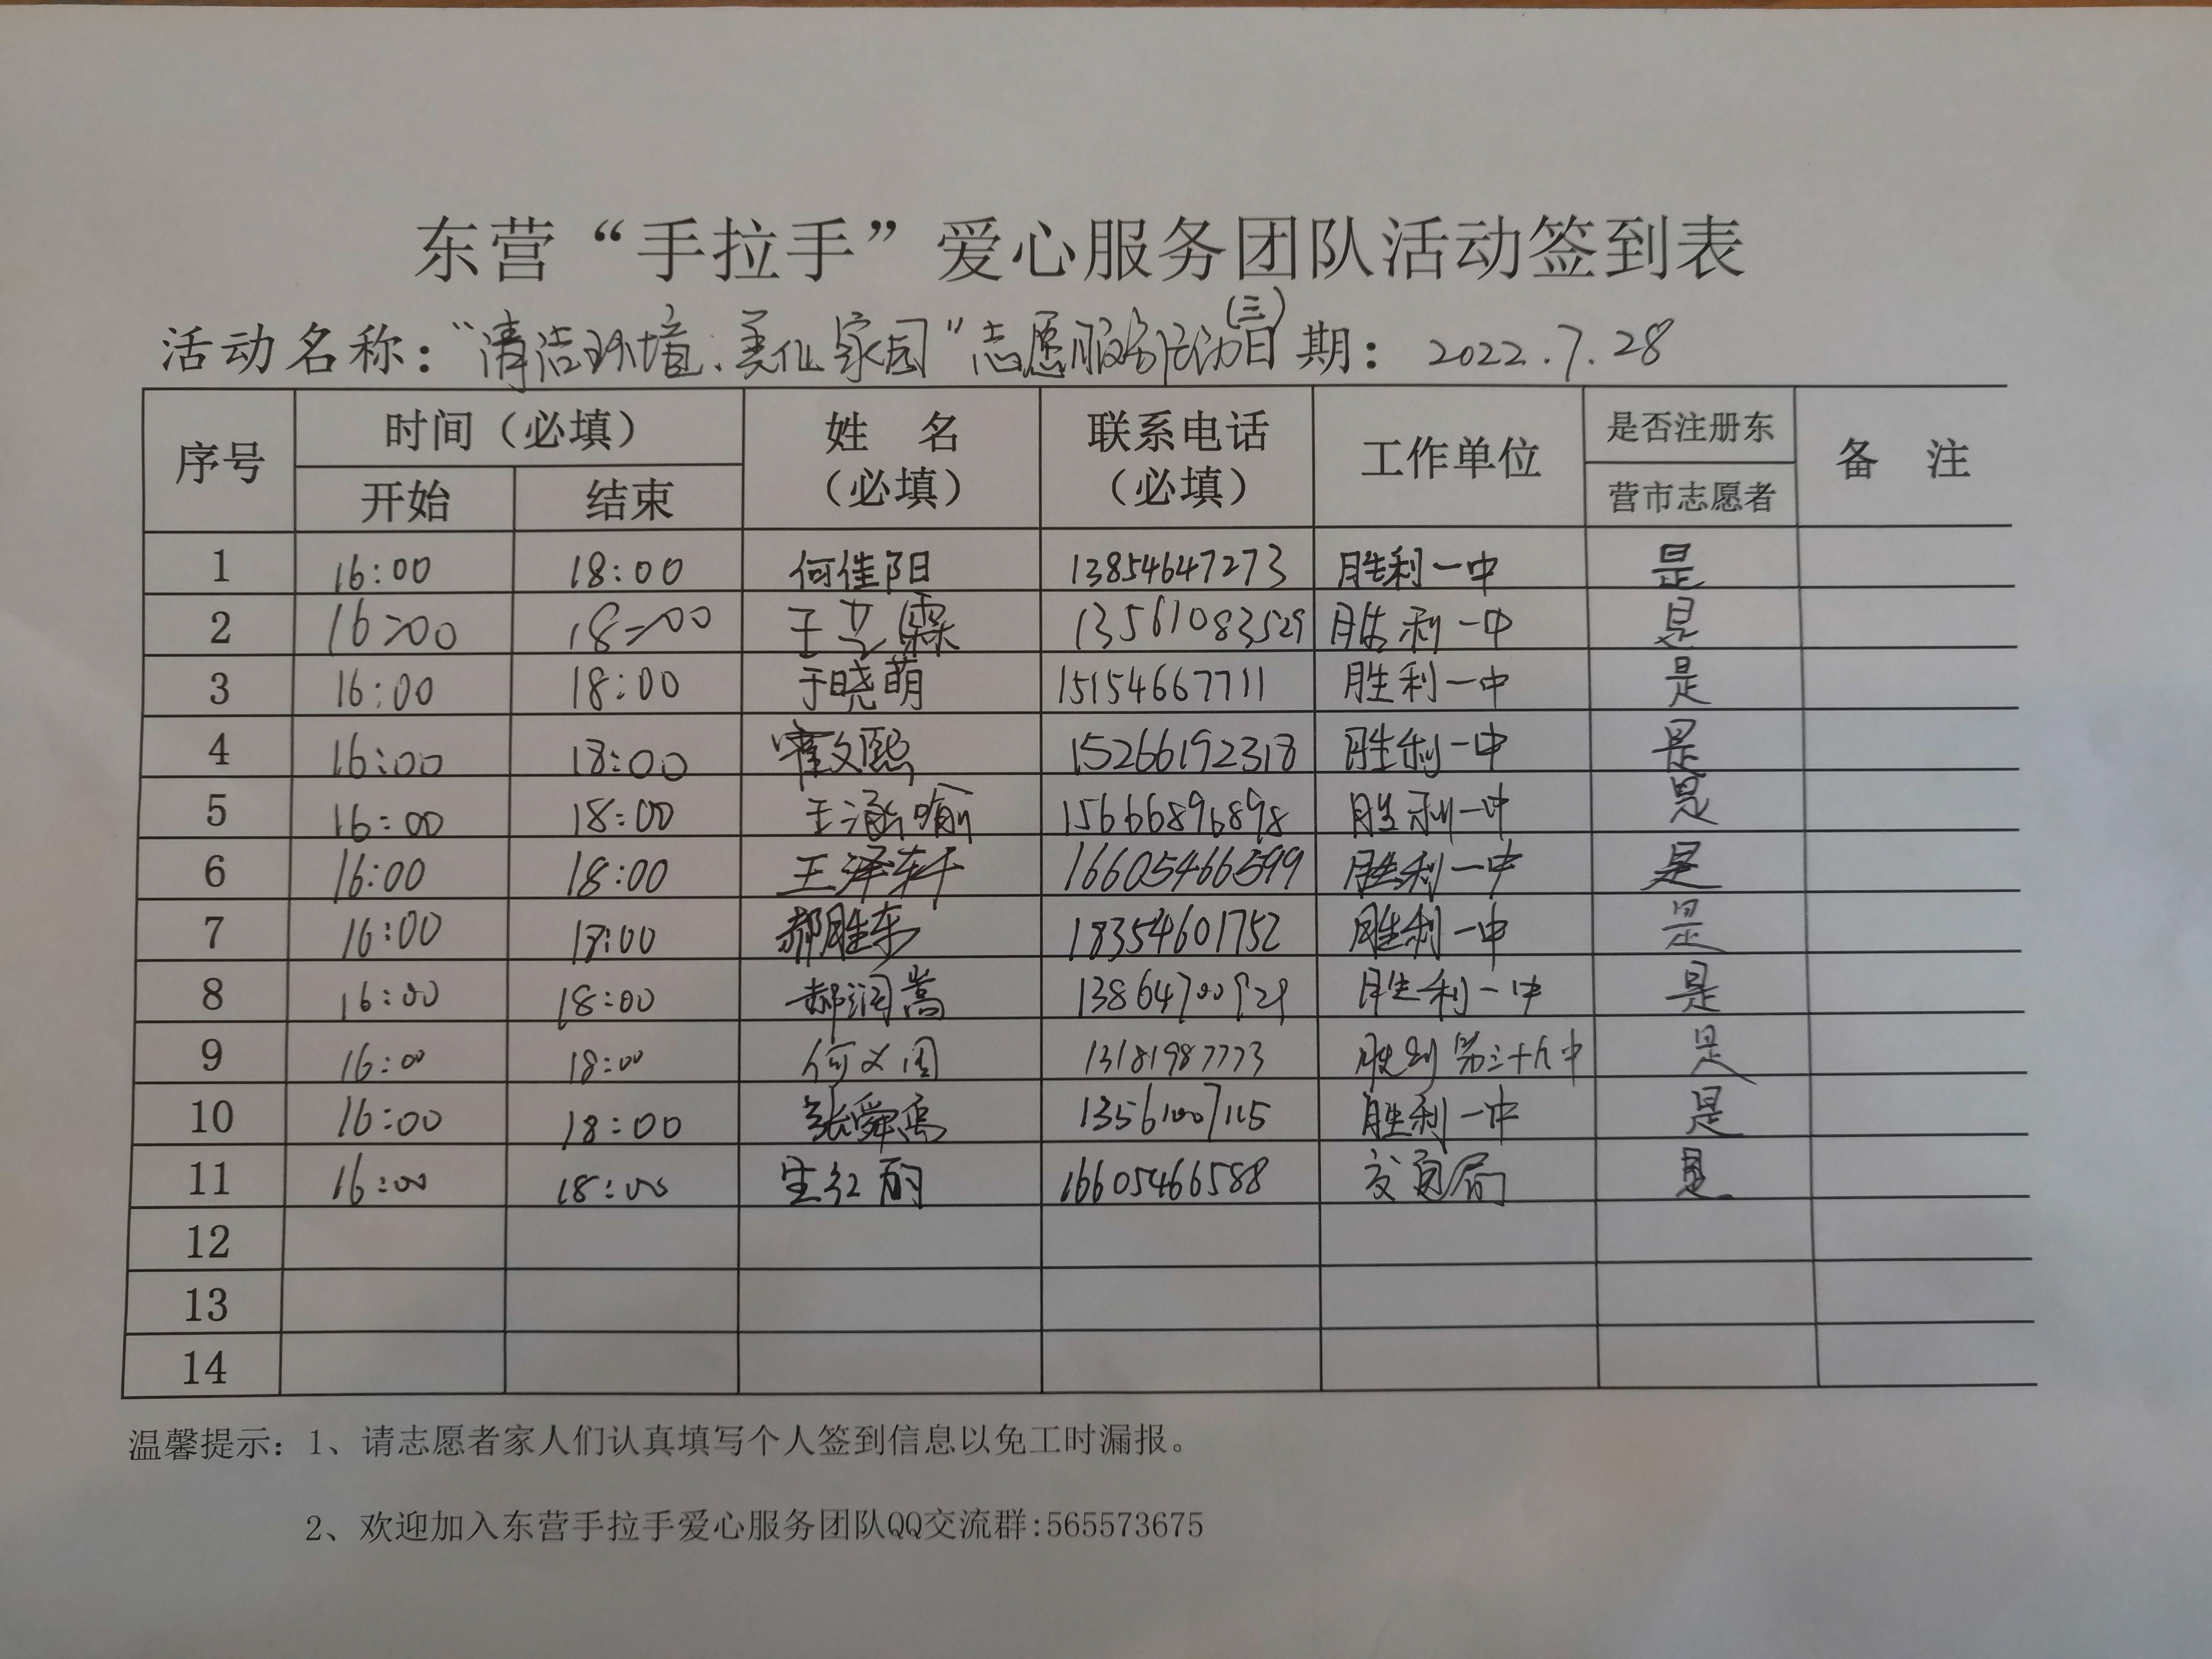 东营“手拉手”爱心服务团队活动签到表
(三)
活动名称：“清洁环境、美化家园”志愿服务活动 日期：2022.7.28
序号 时间（必填） 姓 名（必填） 联系电话（必填） 工作单位 是否注册东营市志愿者 备 注
开始 结束
1 16:00 18:00 何佳阳 13854647273 胜利一中 是
2 16:00 18:00 王立霖 13561083529 胜利一中 是
3 16:00 18:00 于晓萌 15154667711 胜利一中 是
4 16:00 18:00 霍文熙 15266192318 胜利一中 是
5 16:00 18:00 王涵喻 15666896898 胜利一中 是
6 16:00 18:00 王泽轩 16605466599 胜利一中 是
7 16:00 18:00 郝胜东 18354601752 胜利一中 是
8 16:00 18:00 郝润嵩 13864700929 胜利一中 是
9 16:00 18:00 何义国 13181987773 是
10 16:00 18:00 张舜禹 13561007115 胜利一中 是
11 16:00 18:00 生红丽 16605466588 是
12
13
14
温馨提示：1、请志愿者家人们认真填写个人签到信息以免工时漏报。
2、欢迎加入东营手拉手爱心服务团队QQ交流群:565573675